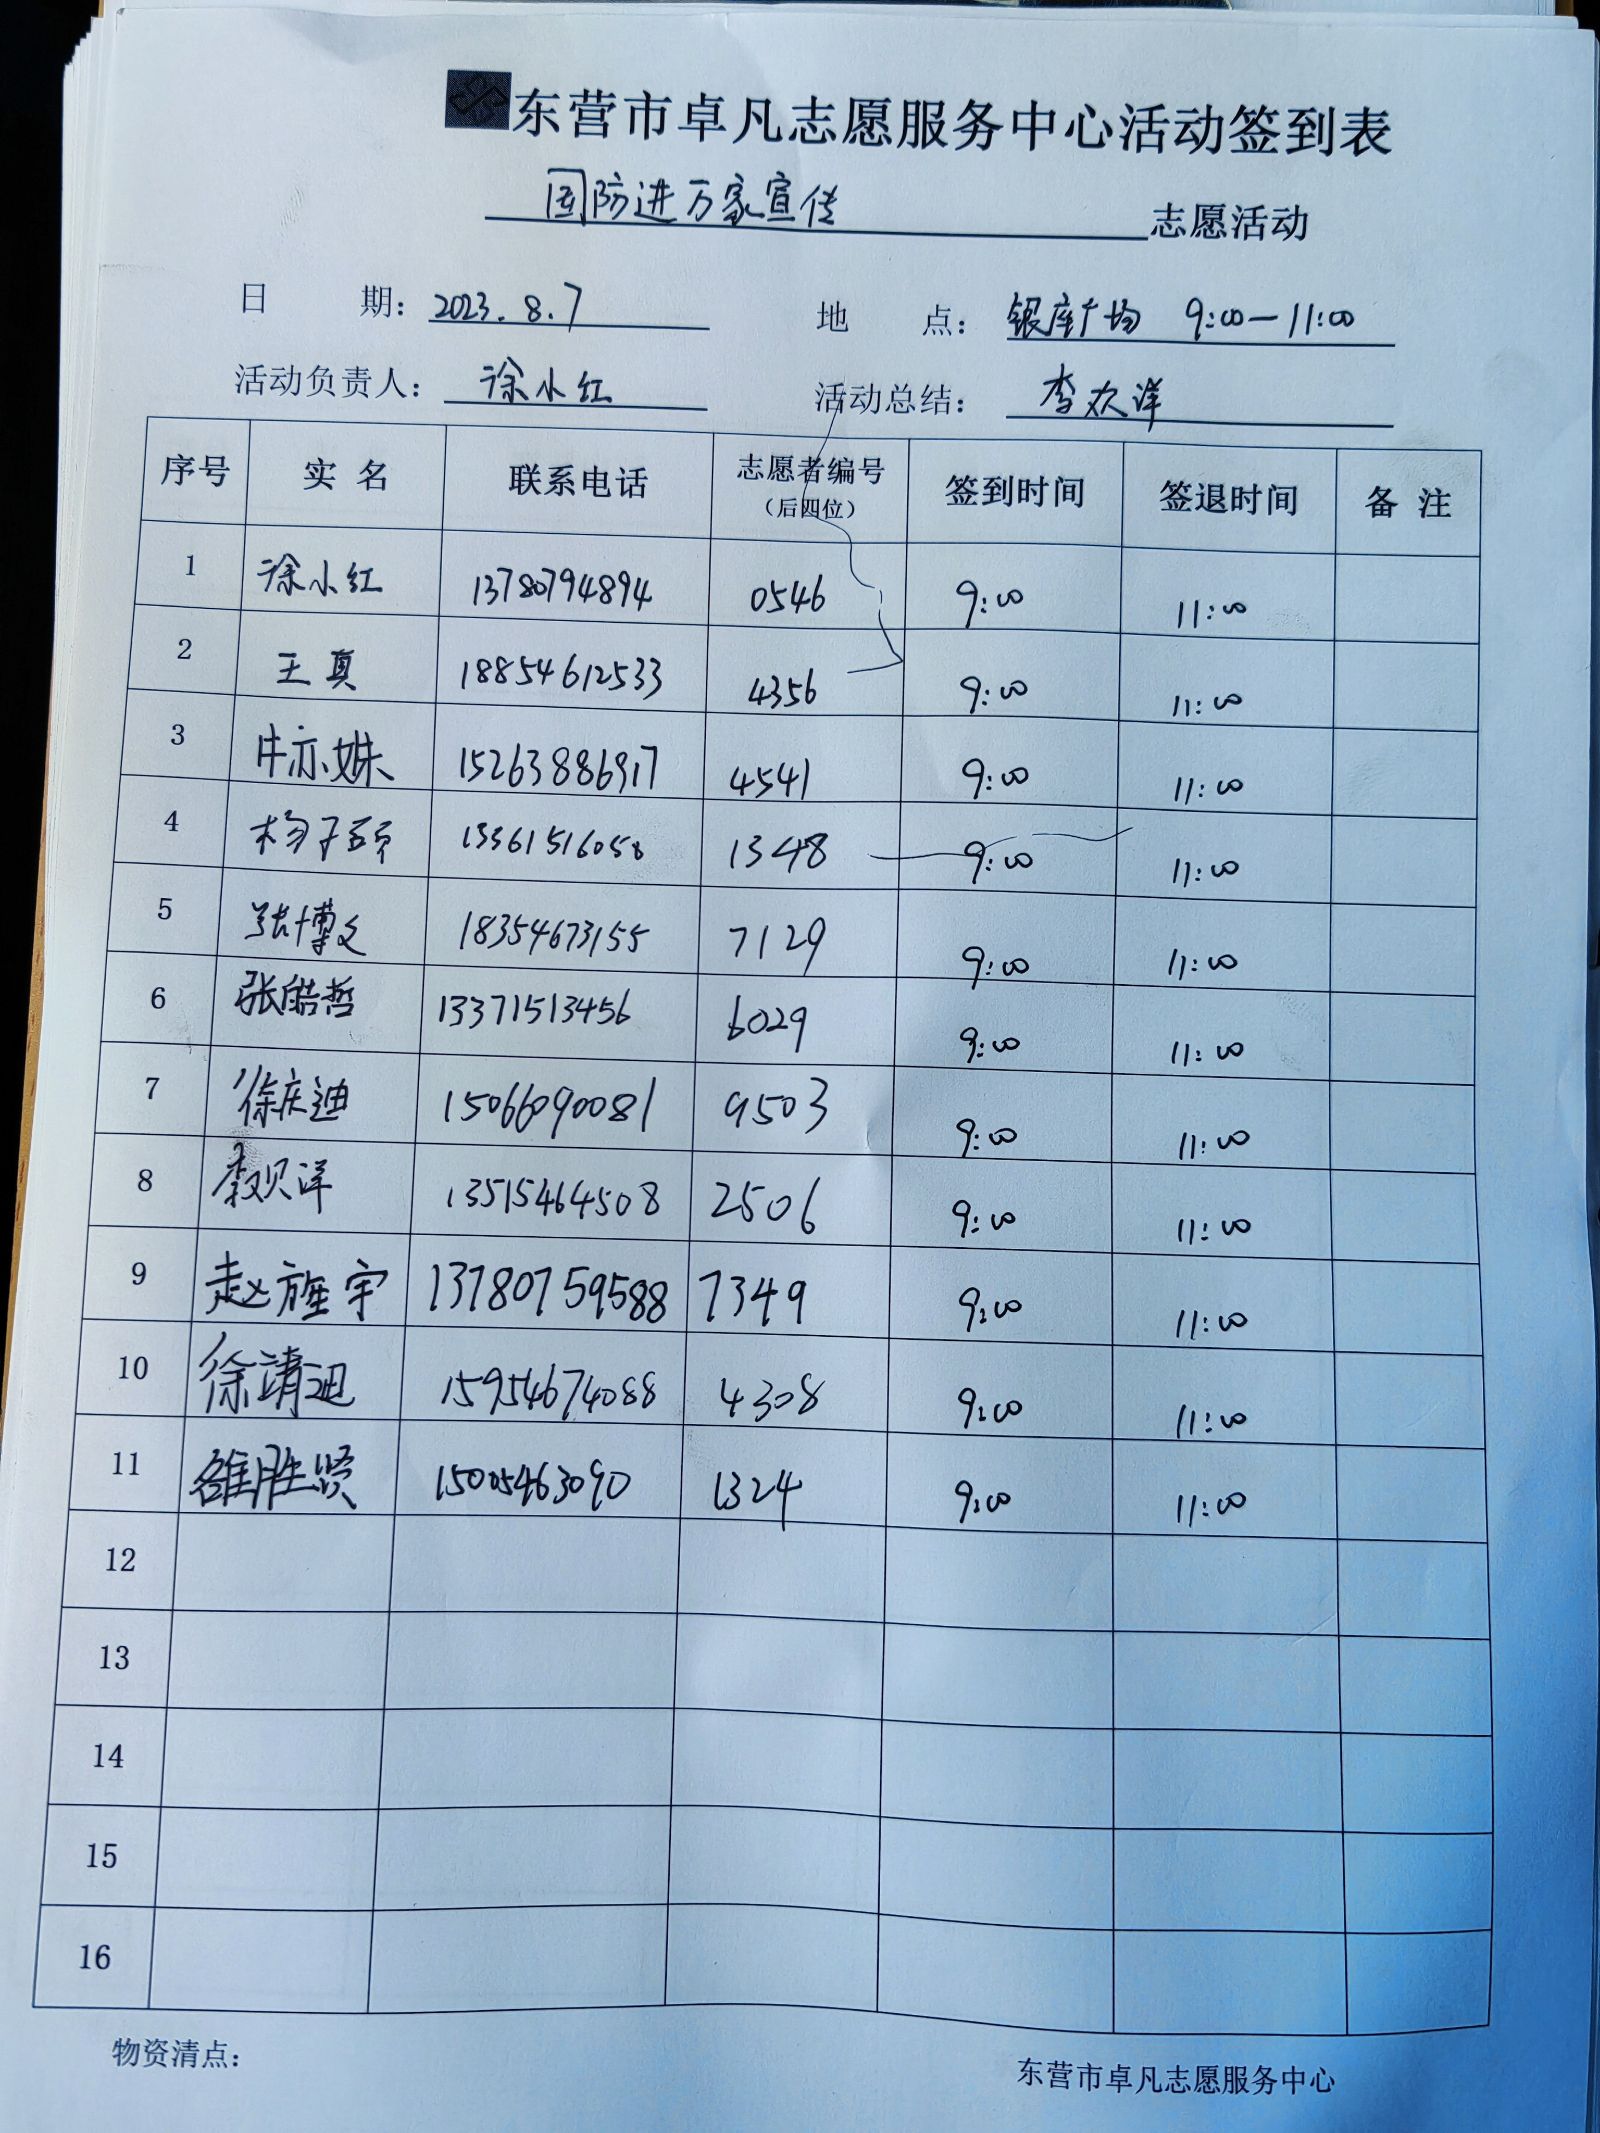 东营市卓凡志愿服务中心活动签到表
国防进万家宣传 志愿活动
日 期：2023.8.7 地 点：银座广场 9:00—11:00
活动负责人：徐小红 活动总结：李欢洋
序号 实名 联系电话 志愿者编号（后四位） 签到时间 签退时间 备注
1 徐小红 13780794894 0546 9:00 11:00
2 王真 18854612533 4356 9:00 11:00
3 牛亦姝 15263886917 4541 9:00 11:00
4 杨子 13361516058 1348 9:00 11:00
5 张博文 18354673155 7129 9:00 11:00
6 张皓哲 13371513456 6029 9:00 11:00
7 徐庆迪 15066090081 9503 9:00 11:00
8 李欢洋 13515464508 2506 9:00 11:00
9 赵旌宇 13780759588 7349 9:00 11:00
10 徐靖迪 15954674088 4308 9:00 11:00
11 胜贤 15005463090 1324 9:00 11:00
12
13
14
15
16
物资清点：
东营市卓凡志愿服务中心